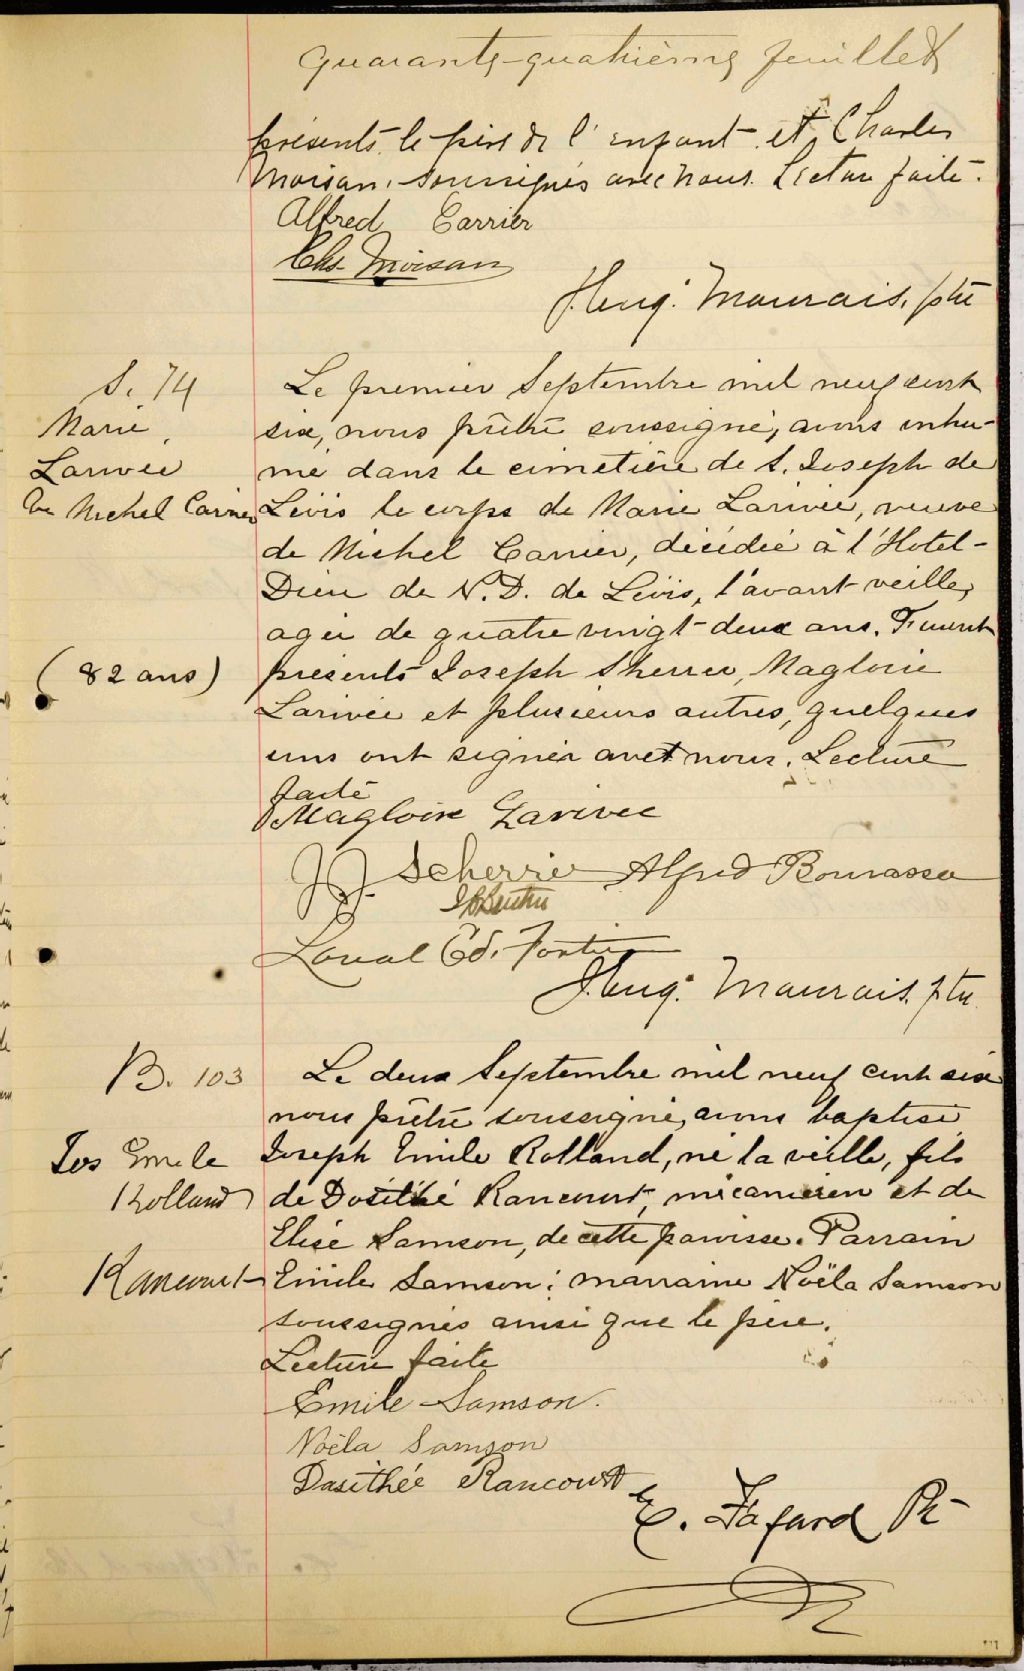 Quarante-quatrième feuillet
présents le père de l'enfant et Charles
Moisan, soussignés avec nous. Lecture faite.
Alfred Carrier
Chs Moisan
J. Eug. Maurais, ptre
S. 74
Marie
Larivée
Vve Michel Carrier
(82 ans)
Le premier Septembre mil neuf cent
six, nous prêtre soussigné, avons inhu-
mé dans le cimetière de S. Joseph de
Lévis le corps de Marie Larivée, veuve
de Michel Carrier, décédée à l'Hotel-
Dieu de N.D. de Lévis, l'avant veille,
agée de quatre vingt-deux ans. Furent
présents Joseph Sherrer, Magloire
Larivée et plusieurs autres, quelques
uns ont signés avec nous. Lecture
faite
Magloire Larivee
J. J. Scherrer Alfred Bourassa
Laval Ed. Fortier
J. Eug. Maurais, ptre
B. 103
Jos Emile
Rolland
Rancourt
Le deux Septembre mil neuf cent six
nous prêtre soussigné, avons baptisé
Joseph Emile Rolland, né la veille, fils
de Dosithé Rancourt, mécanicien et de
Elise Samson, de cette paroisse. Parrain
Emile Samson; marraine Noëla Samson
soussignés ainsi que le père.
Lecture faite
Emile Samson.
Noëla Samson
Dasithée Rancourt
E. Fafard Ptr